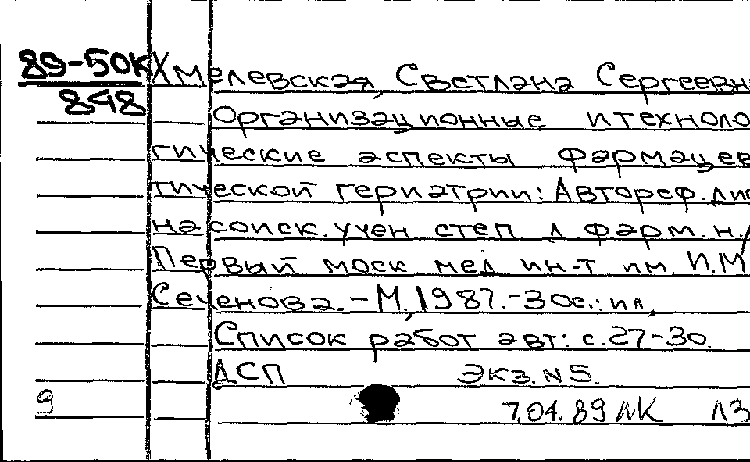 89-50К Хмелевская, Светлана Сергеевн
848 Организационные и техноло
гические аспекты фармацев
тической гериатрии: Автореф. дис
на соиск. учен степ д фарм. н.
Первый моск мед ин-т им. И.М
Сеченова. - М, 1987. - 30с.: ил,
Список работ авт: с. 27-30.
ДСП Экз. N5.
9 7.04.89 ЛК ЛЗ